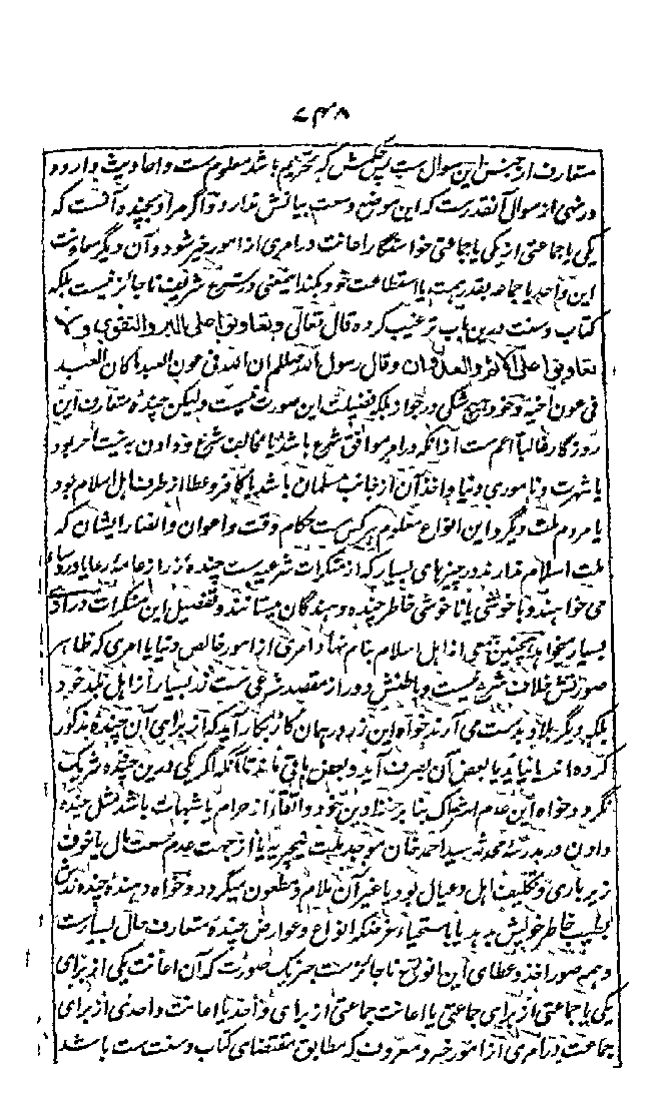 ۷۴۸
متعارف از جنس این سوال ست پس حکمش که تحریم باشد معلوم ست و احادیث وارده
در نهی از سوال آنقدرست که این موضع وسعت بیانش ندارد و اگر مراد بچنده آنست که
یکی یا جماعتی از یکی یا جماعتی خواستگار اعانت در امری از امور خیر شود و آن دیگر معاونت
این واحد یا جماعه بقدر همت یا استطاعت خود بکند اینمعنی در شرع شریف ناجائز نیست بلکه
کتاب و سنت درین باب ترغیب کرده قال تعالی وتعاونوا علی البر والتقوی ولا
تعاونوا علی الاثم والعدوان وقال رسول الله صللم ان الله فی عون العبد ما کان العبد
فی عون اخیه وخود هیچ شکی در جواز بلکه فضیلت این صورت نیست ولیکن چنده متعارف این
روزگار غالبا اعم ست ازانکه در امر موافق شرع باشد یا مخالف شرع و دادن به نیت اجر بود
یا شهرت و ناموری دنیا و اخذ آن از جانب مسلمان باشد یا کافر و عطا از طرف اهل اسلام بود
یا مردم ملت دیگر و این انواع معلوم هر کس ست حکام وقت و اعوان و انصار ایشان که
ملت اسلام ندارند در چیزهای بسیار که از منکرات شرعیه ست چندهٔ زر از عامهٔ رعایا و روسا
می خواهند و با خوشی یا ناخوشی خاطر چنده دهندگان میستانند و تفصیل این منکرات درازی
بسیار میخواهد همچنین جمعی از اهل اسلام بنام نهاد امری از امور خالص دنیا یا امری که ظاهر
صورتش خلاف شرع نیست و باطنش دور از مقصد شرعی ست زر بسیار از اهل بلد خود
بلکه دیگر بلاد بدست می آرند خواه این زر در همان کار بکار آید که از برای آن چنده مذکور
کرده اند یا نیاید یا بعض آن بصرف آید و بعض باقی ماند تا آنکه اگر یکی درین چنده شریک
نگردد و خواه این عدم اشتراک بنا بر حفظ دین خود و اتقاء از حرام یا شبهات باشد مثل چنده
دادن در مدرسهٔ محدثه سید احمد خان موجد ملت نیچریه یا از جهت عدم وسعت مال یا خوف
زیرباری و تکلیف اهل و عیال بود یا غیر آن ملام و مطعون میگردد و خواه دهندهٔ چنده زرش
بطیب خاطر خویش بدهد یا باستحیاء غرضکه انواع و عوارض چندهٔ متعارف حال بسیارست
و همه صور اخذ و عطای این انواع ناجائزست جز یک صورت که آن اعانت یکی از برای
یکی یا جماعتی از برای جماعتی یا اعانت جماعتی از برای واحد یا اعانت واحدی از برای
جماعت در امری از امور خیر و معروف که مطابق مقتضای کتاب و سنت ست باشد